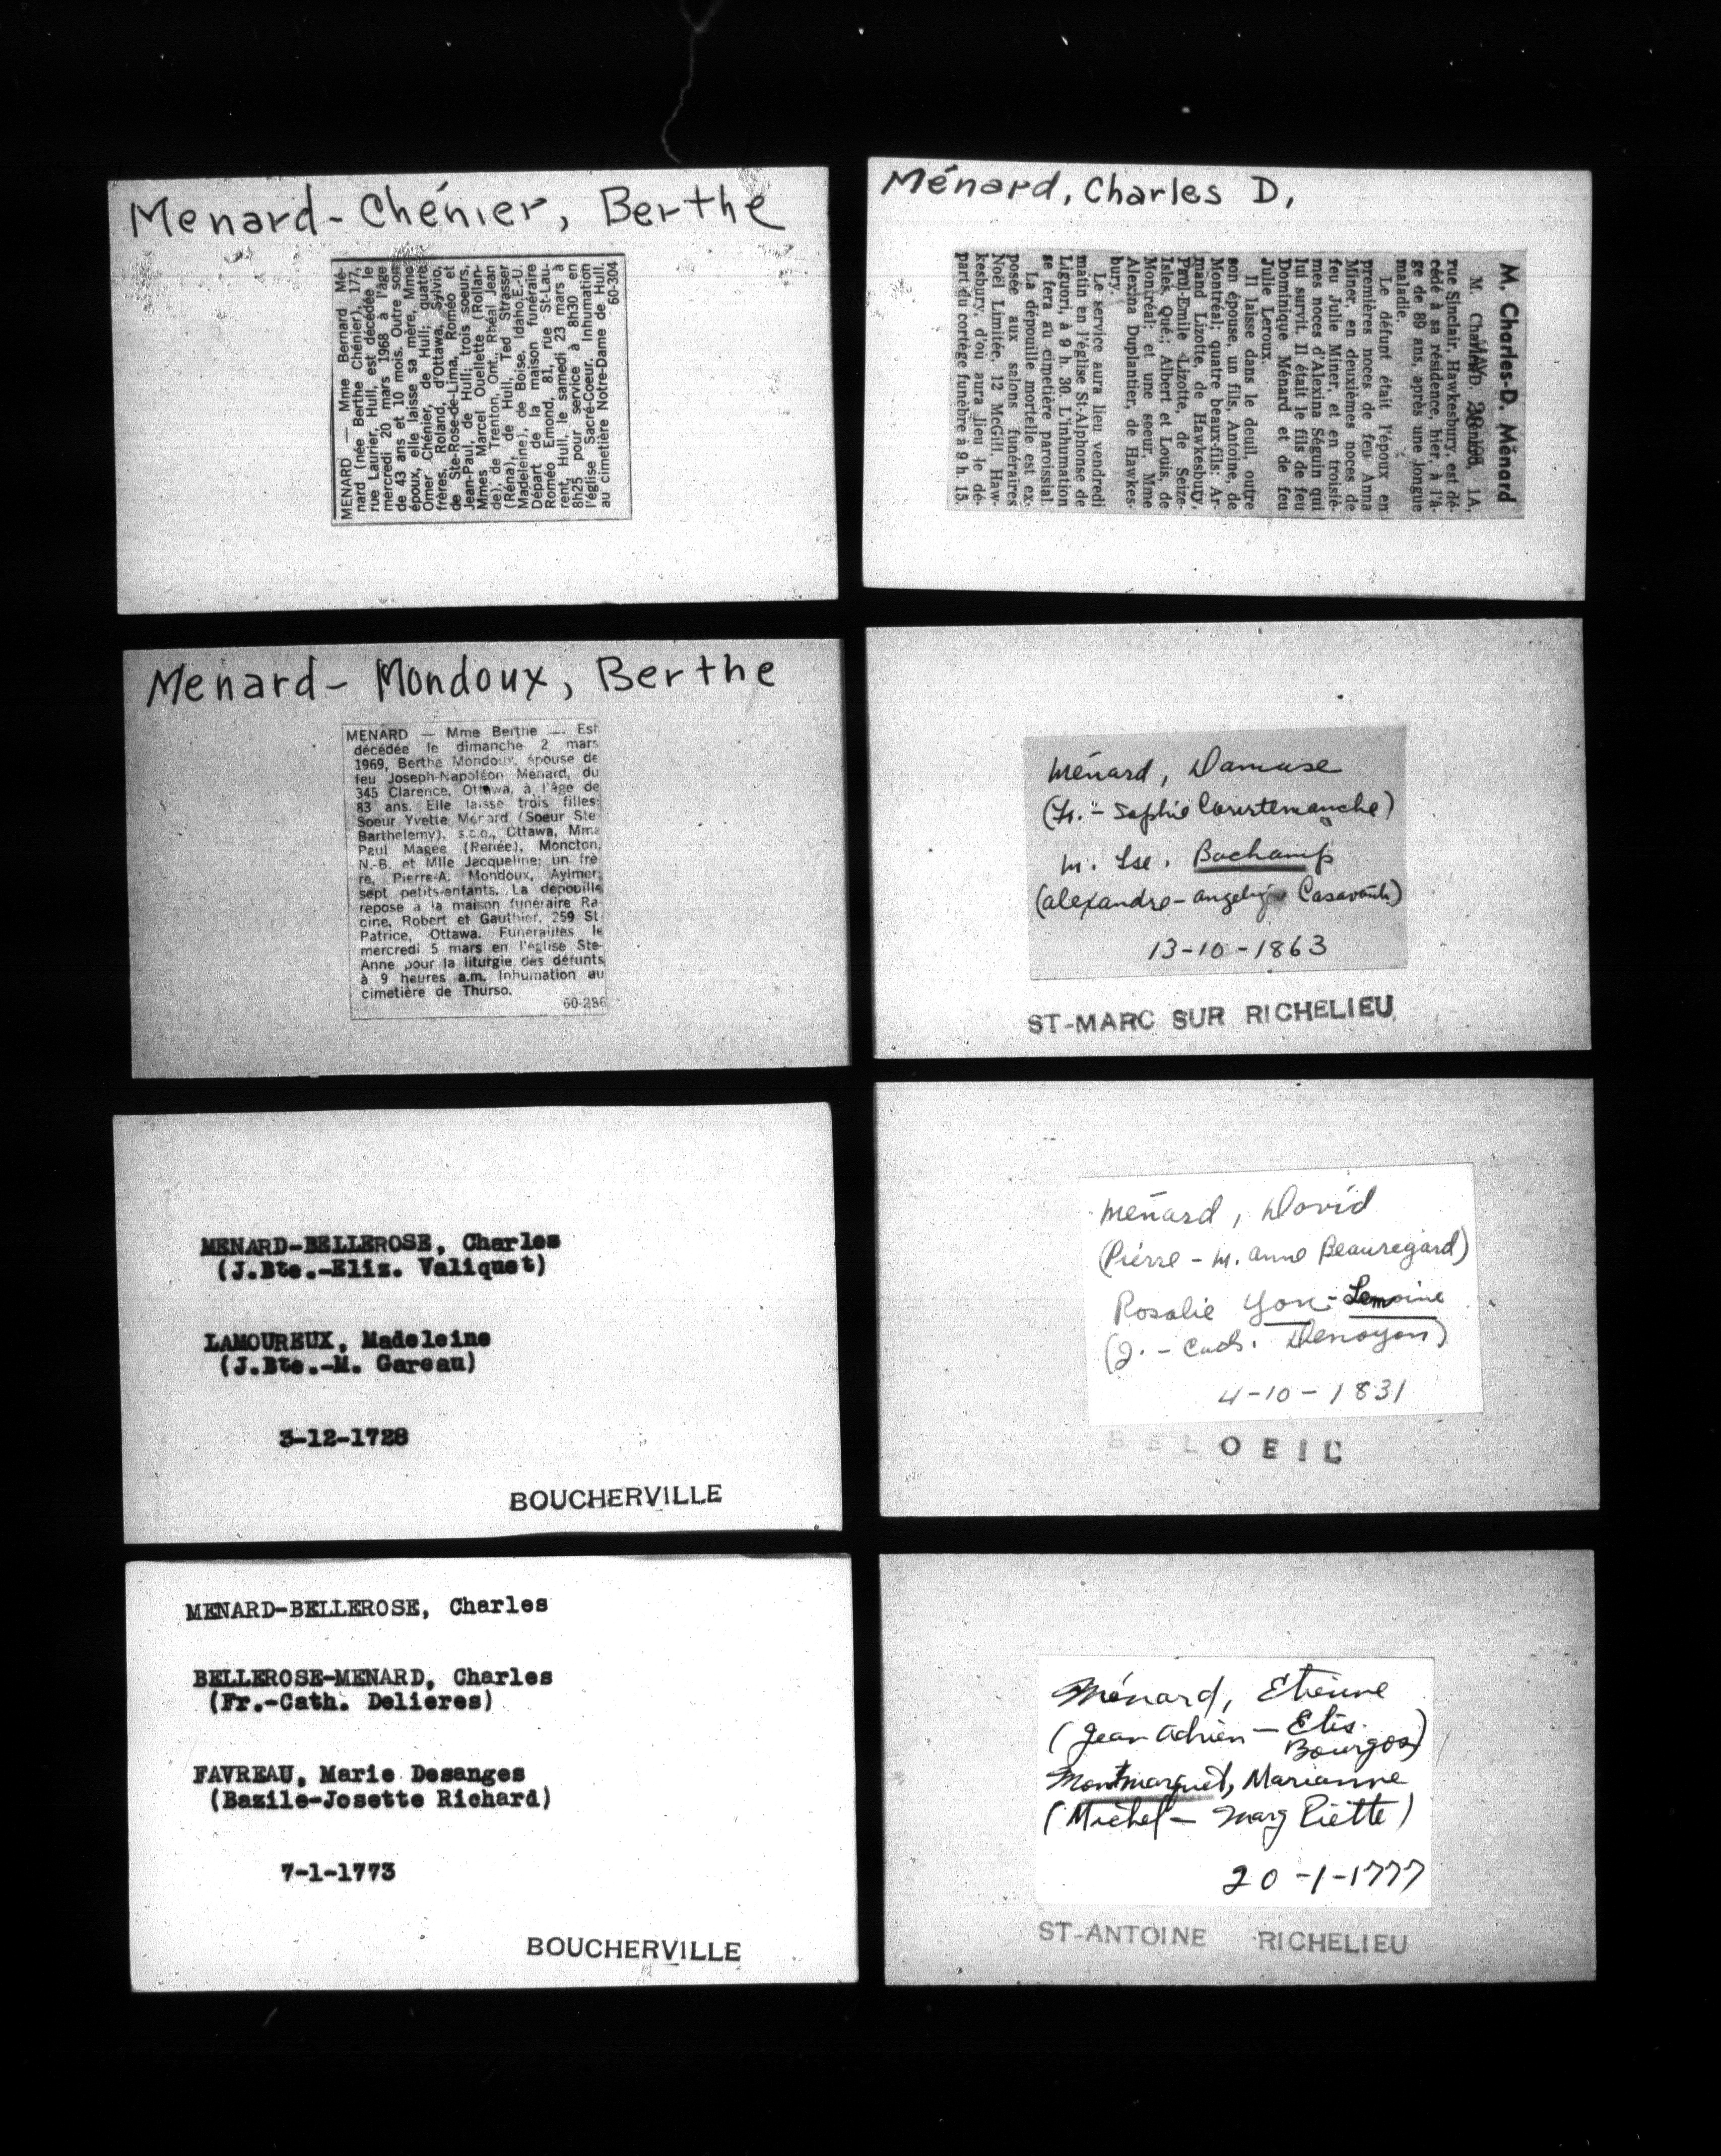 Menard-Chénier, Berthe
MENARD — Mme Bernard Mé-
nard (née Berthe Chénier), 177,
rue Laurier, Hull, est décédée le
mercredi 20 mars 1968 à l'âge
de 43 ans et 10 mois. Outre son
époux, elle laisse sa mère, Mme
Omer Chénier, de Hull; quatre
frères, Roland, d'Ottawa, Sylvio,
de Ste-Rose-de-Lima, Roméo et
Jean-Paul, de Hull; trois soeurs,
Mmes Marcel Ouellette (Rollan-
de), de Trenton, Ont., Rhéal Jean
(Réna), de Hull, Ted Strasser
Madeleine), de Boise, Idaho, E.-U.
Départ de la maison funéraire
Roméo Emond, 81, rue St-Lau-
rent, Hull, le samedi 23 mars à
8h25 pour service à 8h30 en
l'église Sacré-Coeur. Inhumation
au cimetière Notre-Dame de Hull.
60-304
Menard- Mondoux, Berthe
MENARD — Mme Berthe — Est
décédée le dimanche 2 mars
1969, Berthe Mondoux, épouse de
feu Joseph-Napoléon Ménard, du
345 Clarence, Ottawa, à l'âge de
83 ans. Elle laisse trois filles:
Soeur Yvette Ménard (Soeur Ste
Barthelemy), s.c.o., Ottawa, Mme
Paul Magee (Renée), Moncton,
N.-B. et Mlle Jacqueline; un frè
re, Pierre-A. Mondoux, Aylmer;
sept petits-enfants. La dépouille
repose à la maison funéraire Ra-
cine, Robert et Gauthier, 259 St-
Patrice, Ottawa. Funérailles le
mercredi 5 mars en l'église Ste-
Anne pour la liturgie des défunts
à 9 heures a.m. Inhumation au
cimetière de Thurso.
60-286
MENARD-BELLEROSE, Charles
(J.Bte.-Eliz. Valiquet)
LAMOUREUX, Madeleine
(J.Bte.-M. Gareau)
3-12-1728
BOUCHERVILLE
MENARD-BELLEROSE, Charles
BELLEROSE-MENARD, Charles
(Fr.-Cath. Delieres)
FAVREAU, Marie Desanges
(Bazile-Josette Richard)
7-1-1773
BOUCHERVILLE
Ménard, Charles D,
M. Charles-D. Ménard
M. Charles-D. Ménard, 1A,
rue Sinclair, Hawkesbury, est dé-
cédé à sa résidence, hier, à l'â-
ge de 89 ans, après une longue
maladie.
Le défunt était l'époux en
premières noces de feu Anna
Miner, en deuxièmes noces de
feu Julie Miner, et en troisiè-
mes noces d'Alexina Séguin qui
lui survit. Il était le fils de feu
Dominique Ménard et de feu
Julie Leroux.
Il laisse dans le deuil, outre
son épouse, un fils, Antoine, de
Montréal; quatre beaux-fils: Ar-
mand Lizotte, de Hawkesbury,
Paul-Emile Lizotte, de Seize-
Isles, Qué.; Albert et Louis, de
Montréal; et une soeur, Mme
Alexina Duplantier, de Hawkes-
bury.
Le service aura lieu vendredi
matin en l'église St-Alphonse de
Liguori, à 9 h. 30 L'inhumation
se fera au cimetière paroissial.
La dépouille mortelle est ex-
posée aux salons funéraires
Noël Limitée, 12 McGill, Haw-
kesbury, d'où aura lieu le dé-
part du cortège funèbre à 9 h. 15.
Ménard, Damase
(Fr. - Sophie Courtemanche)
m. Lse. Bachamp
(Alexandre - Angeliq Casavant)
13-10-1863
ST-MARC SUR RICHELIEU
Ménard, David
(Pierre - M. Anne Beauregard)
Rosalie York-Lemoine
(J. - Cath. Denoyon)
4-10-1831
BELOEIL
Ménard, Etienne
(Jean Adrien - Elis.
Bourgos)
Montmarquet, Marianne
(Michel - Marg Piette)
20-1-1777
ST-ANTOINE RICHELIEU